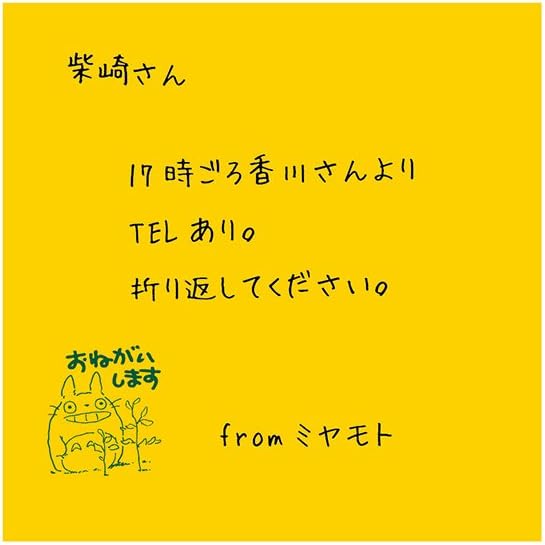 柴崎さん
17時ごろ香川さんより
TELあり。
折り返してください。
おねがい
します
fromミヤモト